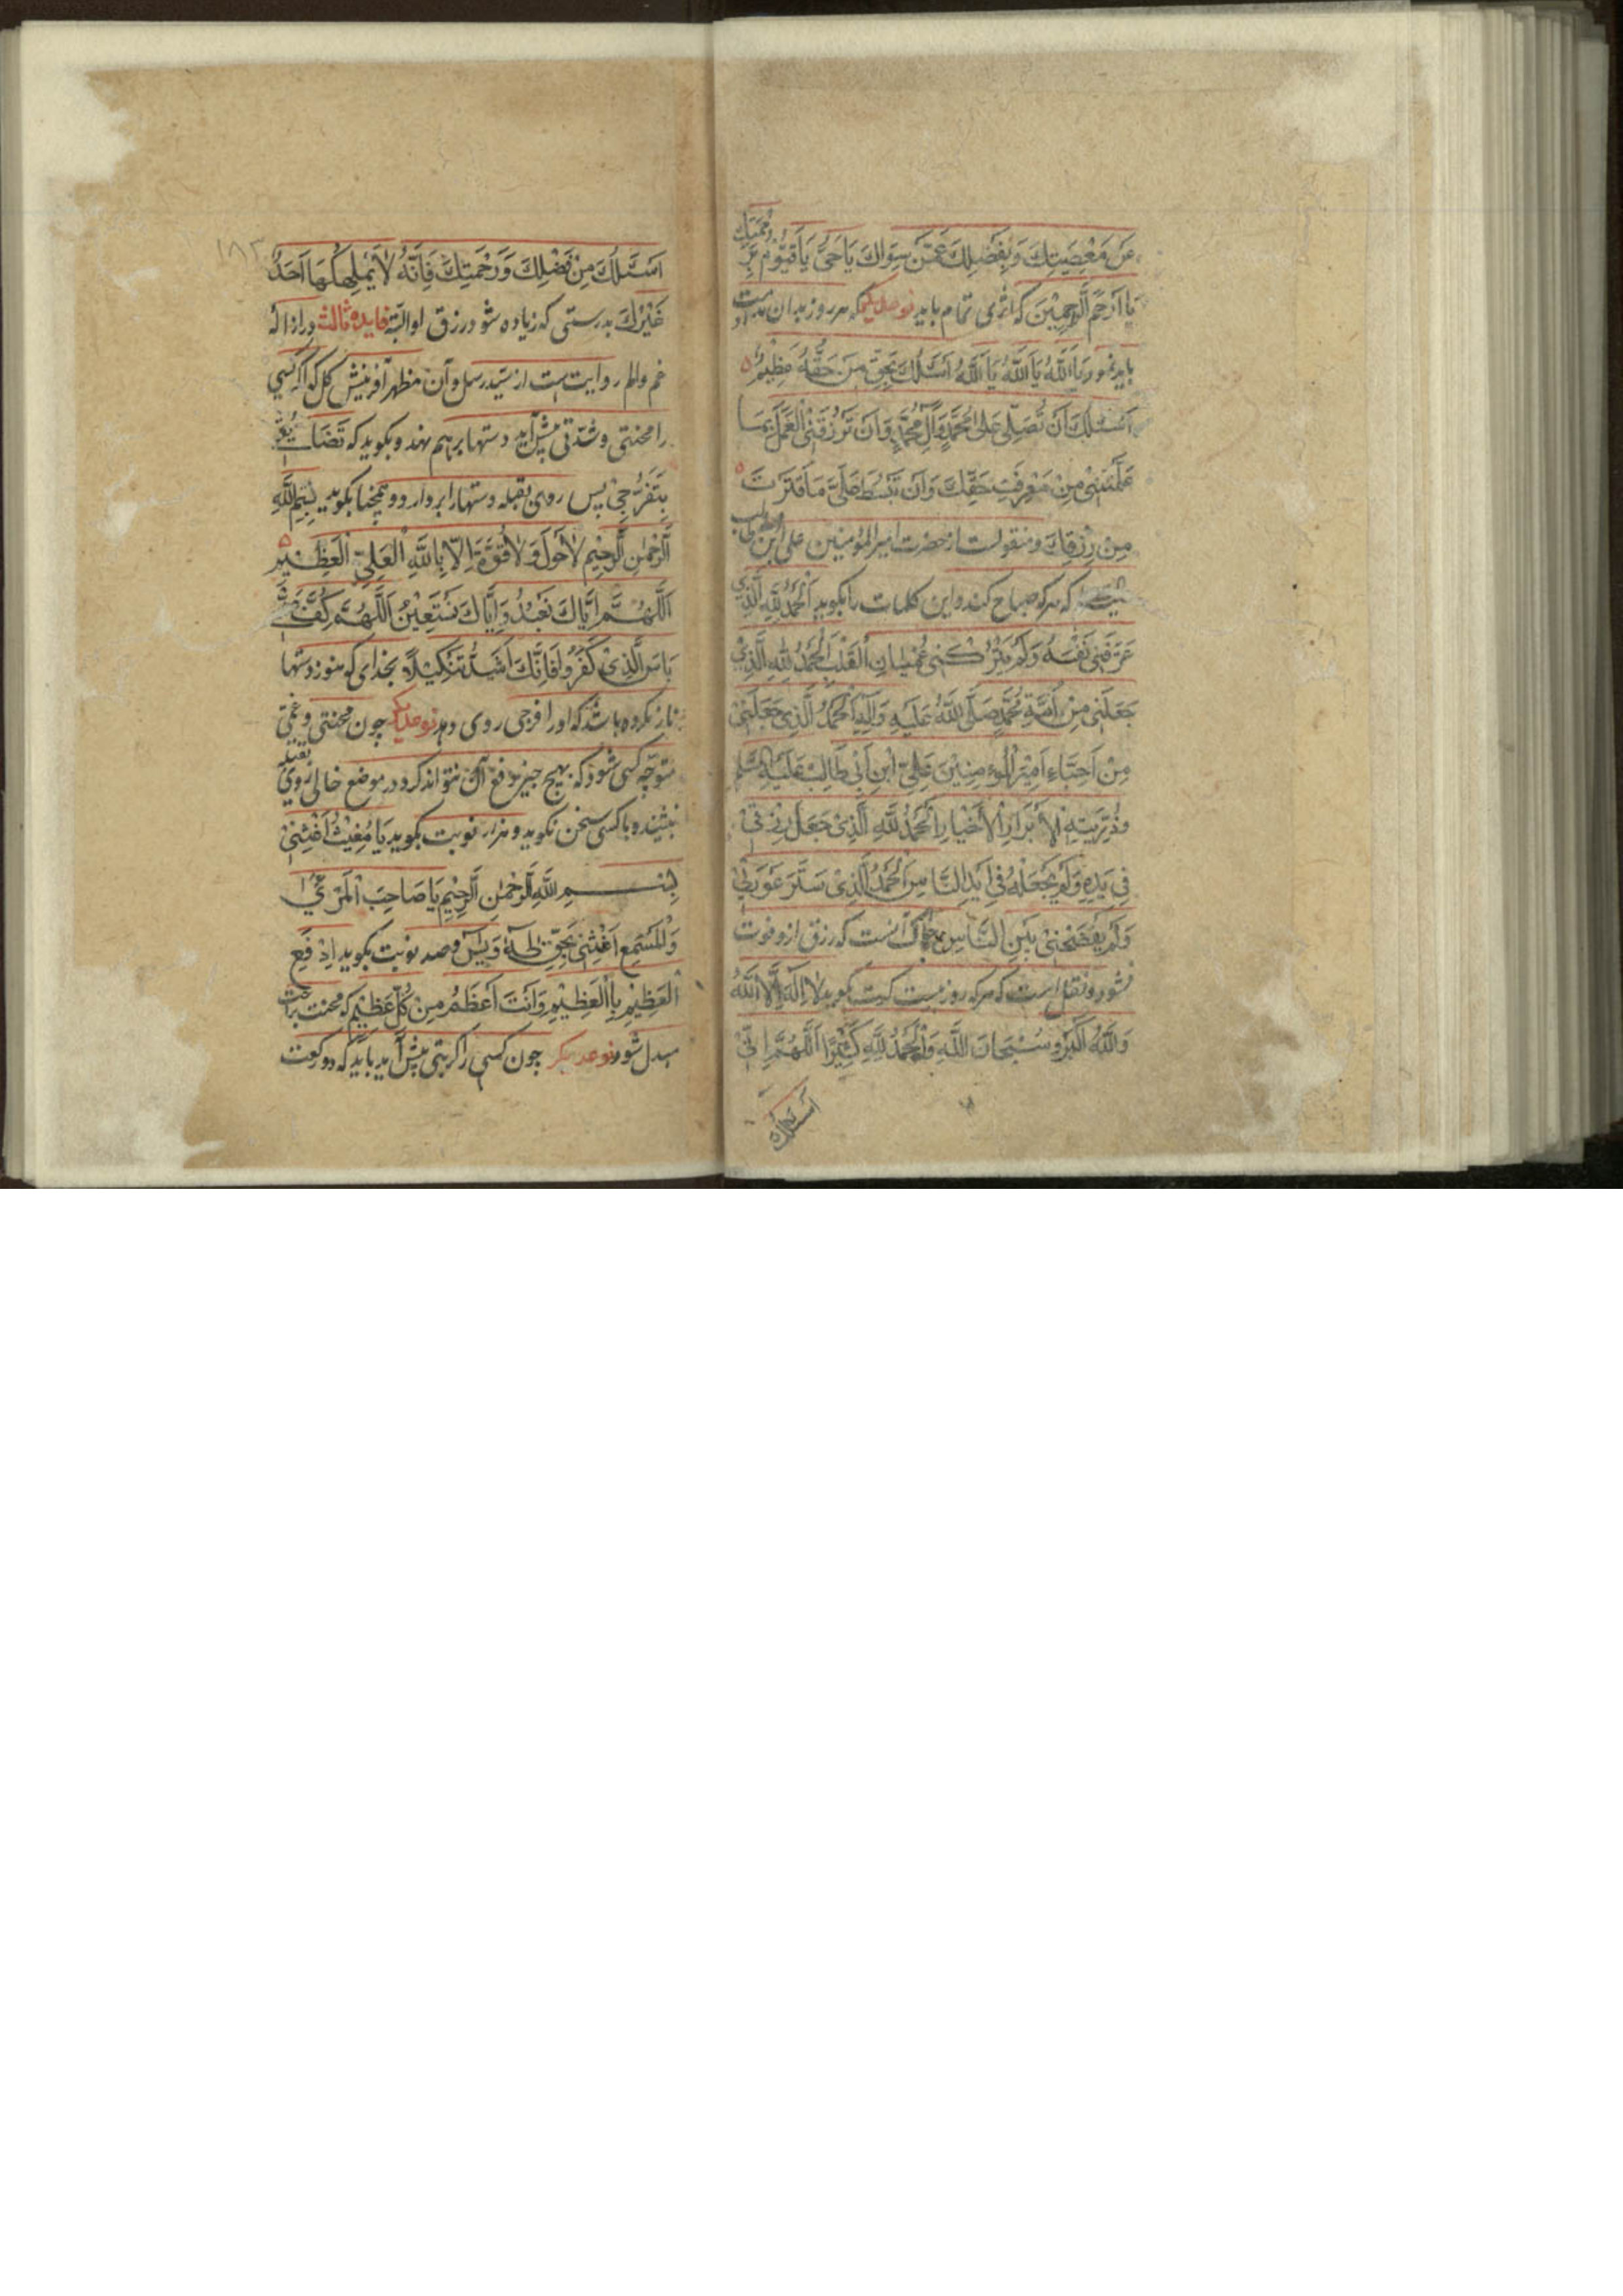 عَنْ مَعْصِيَتِكَ وَبِفَضْلِكَ عَمَّنْ سِوَاكَ يَا حَيُّ يَا قَيُّومُ بِرَحْمَتِكَ
يَا اَرْحَمَ الرَّاحِمِيْنَ که اثری تمام یابد نوعدیکر که هر روز بدان
باید نمود یَا اَللّٰهُ یَا اَللّٰهُ یَا اَللّٰهُ اَسْئَلُكَ بِحَقِّ مَنْ حَقُّهُ عَظِيْمٌ
اَسْئَلُكَ اَنْ تُصَلِّيَ عَلٰى مُحَمَّدٍ وَآلِ مُحَمَّدٍ وَاَنْ تَرْزُقَنِيْ الْعَمَلَ بِمَا
عَلَّمْتَنِيْ مِنْ مَعْرِفَتِ حَقِّكَ وَاَنْ تَبْسُطَ عَلَيَّ مَا قَتَرْتَ
مِنْ رِزْقِكَ ومنقولست از حضرت امیر المؤمنین علی ابن ابیطالب
که هرکه صباح کند و این کلمات را بکوید اَلْحَمْدُ لِلّٰهِ الَّذِيْ
عَرَّفَنِيْ نَفْسَهُ وَلَمْ يَتْرُكْنِيْ عُمْيَانِ الْقَلْبِ اَلْحَمْدُ لِلّٰهِ الَّذِيْ
جَعَلَنِيْ مِنْ اُمَّةِ مُحَمَّدٍ صَلَّى اللّٰهُ عَلَيْهِ وَآلِهِ اَلْحَمْدُ الَّذِيْ جَعَلَنِيْ
مِنْ اَحِبَّاءِ اَمِيْرِ الْمُؤْمِنِيْنَ عَلِيِّ ابْنِ اَبِيْ طَالِبٍ عَلَيْهِ السَّلَامُ
وَذُرِّيَّتِهِ الْاَبْرَارِ الْاَخْيَارِ اَلْحَمْدُ لِلّٰهِ الَّذِيْ جَعَلَ رِزْقِيْ
فِيْ يَدِهِ وَلَمْ يَجْعَلْهُ فِيْ اَيْدِ النَّاسِ اَلْحَمْدُ الَّذِيْ سَتَرَ عَوْرَتِيْ
وَلَمْ يَفْضَحْنِيْ بَيْنَ النَّاسِ آنست که رزق ازو فوت
نشود و نقل است که هرکه روز بیست کرت بکوید لَا اِلٰهَ اِلَّا اللّٰهُ
وَاللّٰهُ اَكْبَرُ وَسُبْحَانَ اللّٰهِ وَالْحَمْدُ لِلّٰهِ كَثِيْرًا اَللّٰهُمَّ اِنِّيْ
اسئلك
۱۸۳
اَسْئَلُكَ مِنْ فَضْلِكَ وَرَحْمَتِكَ فَاِنَّهُ لَا يَمْلِكُهَا اَحَدٌ
غَيْرُكَ بدرستی که زیاده شود رزق او البته فایده ثالثه در ازاله
غم و الم روایت است از سید رسل و آن مظهر آفرینش کل کو اکر کسی
را محنتی و شدتی پیش آید دستها برهم نهد و بکوید که
بِتَفَرُّجِيْ پس روی بقبله دستها را بردارد و همچنین بکوید بِسْمِ اللّٰهِ
الرَّحْمٰنِ الرَّحِيْمِ لَا حَوْلَ وَلَا قُوَّةَ اِلَّا بِاللّٰهِ الْعَلِيِّ الْعَظِيْمِ
اَللّٰهُمَّ اِيَّاكَ نَعْبُدُ وَاِيَّاكَ نَسْتَعِيْنُ اَللّٰهُمَّ كُفَّ
بَاْسَ الَّذِيْ كَفَرُوا فَاِنَّكَ اَشَدُّ تَنْكِيْلًا بخدای که هنوز دستها
باز نکرده باشد که او را فرجی روی دهد نوعدیکر چون محنتی و غمی
متوجه کسی شود که بهیچ چیز دفع آن نتواند کرد در موضع خالی روی بقبله
بنشیند و با کسی سخن نکوید و هزار نوبت بکوید یَا مُغِيْثُ اَغِثْنِيْ
بِسْمِ اللّٰهِ الرَّحْمٰنِ الرَّحِيْمِ يَا صَاحِبَ
وَالْمُسْتَمِعِ اَغِثْنِيْ بِحَقِّ طٰهٰ وَ يٰسٓ و صد نوبت بکوید اِدْفَعِ
الْعَظِيْمِ بِالْعَظِيْمِ وَاَنْتَ اَعْظَمُ مِنْ كُلِّ عَظِيْمٍ که محنت براحت
مبدل شود نوعدیکر چون کسی را کربتی پیش آید باید که دو رکعت